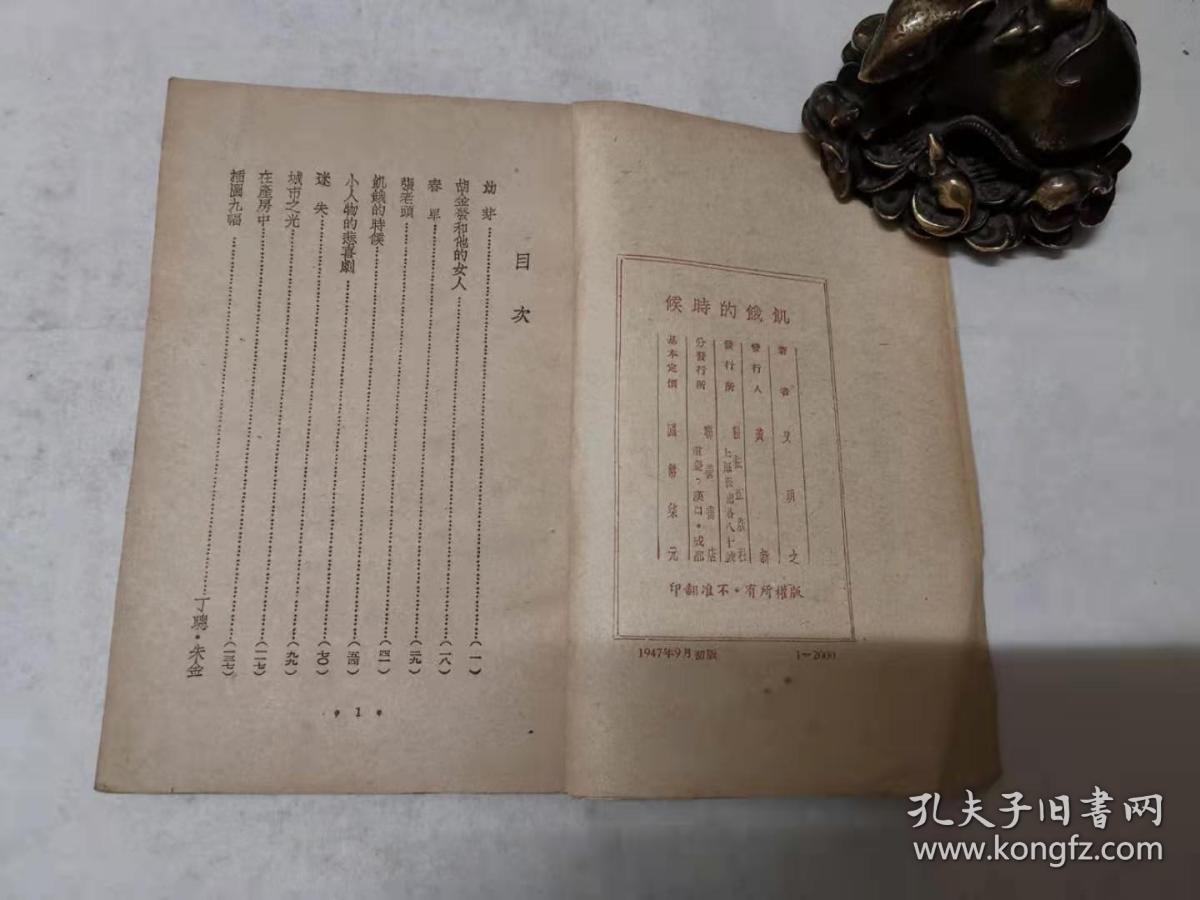 飢餓的時候
著者 艾明之
發行人 黃新
發行所
上海
分發行所 聯營書店
重慶·漢口·成都
基本定價 國幣柒元
版權所有·不准翻印
1947年9月初版 1—2000
目次
幼芽(一)
胡金發和他的女人(一八)
春旱(二九)
張老頭
飢餓的時候(四一)
小人物的悲喜劇
迷失(七〇)
城市之光(九九)
在產房中(一一七)
插圖九幅
(一三七)
丁聰·朱金
• 1 •
孔夫子旧书网
www.kongfz.com